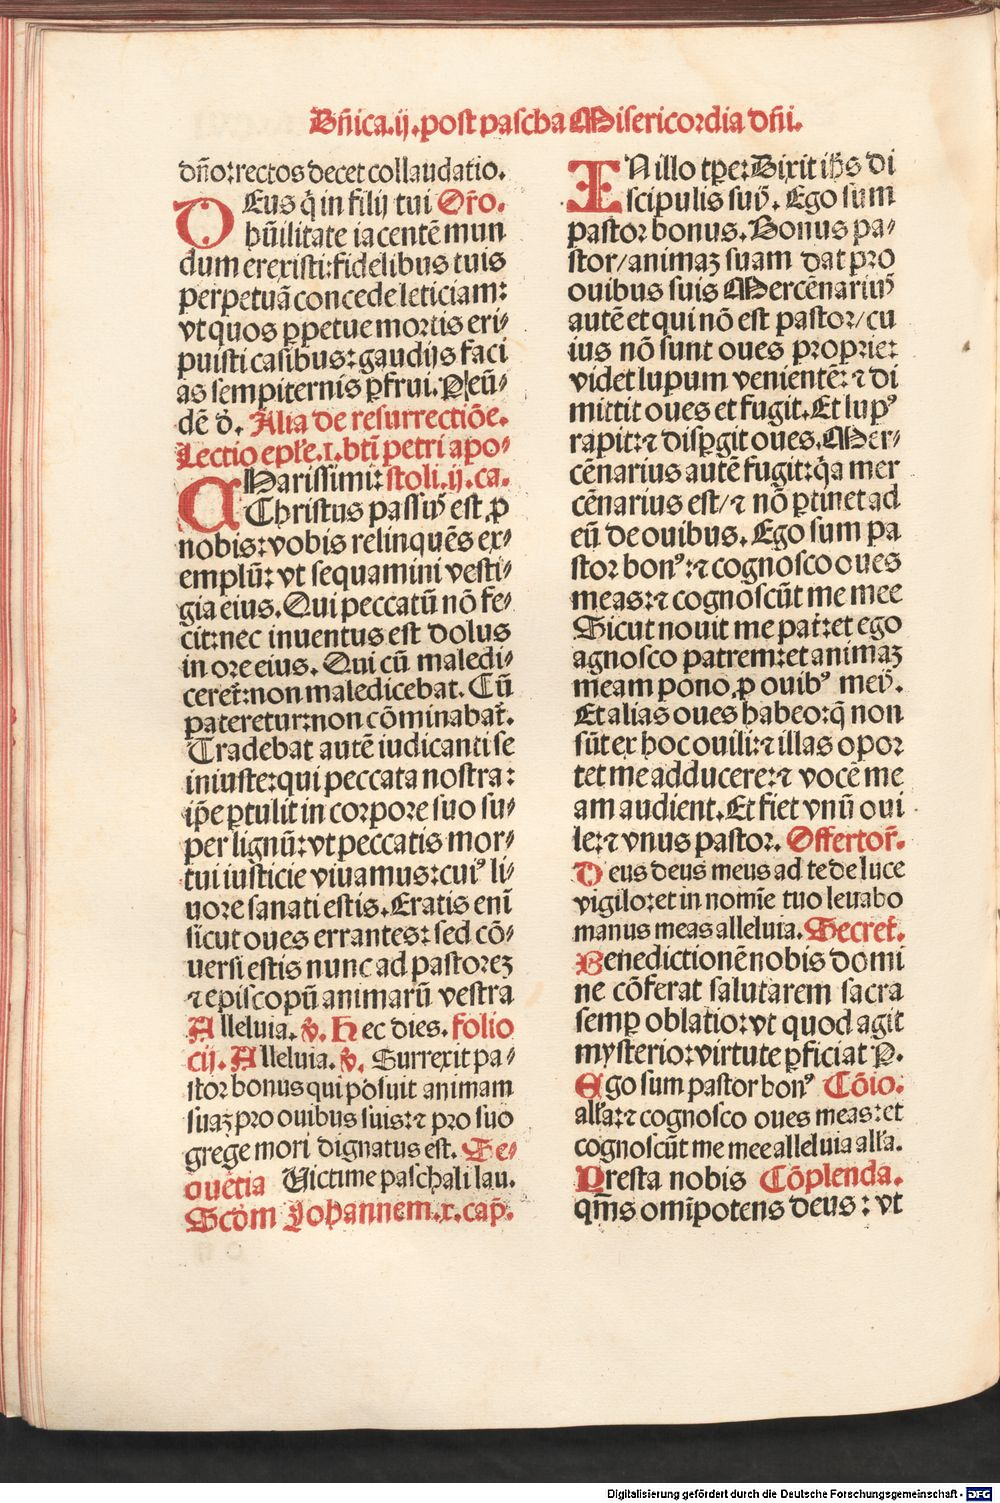 Dñica.ij.post pascha Misericordia dñi.
dño:rectos decet collaudatio.
DEus q̇ in filij tui Or̃o.
hũilitate iacentẽ mun
dum erexisti:fidelibus tuis
perpetuã concede leticiam:
vt quos ꝑpetue mortis eri⸗
puisti casibus:gaudijs faci
as sempiternis ꝑfrui. P̲ eũ⸗
dẽ d̾. Alia de resurrectiõe.
Lectio epl̃e.i.bti̇̃ petri apo⸗
CHarissimi: stoli.ij.ca.
Christus passꝰ est ꝓ
nobis:vobis relinquẽs ex⸗
emplũ: vt sequamini vesti⸗
gia eius. Qui peccatũ nõ fe⸗
cit:nec inuentus est dolus
in ore eius. Qui cũ maledi⸗
ceret̃:non maledicebat. Cũ
pateretur:non cõminabat̃.
Tradebat autẽ iudicanti se
iniuste:qui peccata nostra:
ip̃e ꝑtulit in corpore suo su⸗
per lignũ:vt peccatis mor⸗
tui iusticie viuamus:cuiꝰ li⸗
uore sanati estis. Eratis enĩ
sicut oues errantes: sed cõ⸗
uersi estis nunc ad pastoreꝫ
⁊ episcopũ animarũ vestra
Alleluia. ℣. Hec dies. folio
cij. Alleluia. ℣. Surrexit pa⸗
stor bonus qui posuit animam
suaꝫ pro ouibus suis:⁊ pro suo
grege mori dignatus est. Se⸗
quẽtia Victime paschali lau.
Scd̃m Johannem.x.cap̃.
IN illo tꝑe: Dixit ih̃s di
scipulis suꝭ. Ego sum
pastor bonus. Bonus pa⸗
stor/animaꝫ suam dat pro
ouibus suis Mercẽnariꝰ
autẽ et qui nõ est pastor/cu
ius nõ sunt oues proprie:
videt lupum venientẽ: ⁊ di
mittit oues et fugit. Et lupꝰ
rapit:⁊ disꝑgit oues. Mer⸗
cẽnarius autẽ fugit:q̃a mer
cẽnarius est/⁊ nõ ꝑtinet ad
eũ de ouibus. Ego sum pa
stor bonꝰ:⁊ cognosco oues
meas:⁊ cognoscũt me mee
Sicut nouit me pat̃:et ego
agnosco patrem:et animaꝫ
meam pono ꝓ ouibꝰ meꝭ.
Et alias oues habeo:q̃ non
sũt ex hoc ouili:⁊ illas opor
tet me adducere:⁊ vocẽ me
am audient. Et fiet vnũ oui
le:⁊ vnus pastor. Offertor̃.
Deus deus meus ad te de luce
vigilo:et in nomĩe tuo leuabo
manus meas alleluia. Secret̃.
Benedictionẽ nobis domi
ne cõferat salutarem sacra
semꝑ oblatio:vt quod agit
mysterio:virtute ꝑficiat P̲.
Ego sum pastor bonꝰ Cõio.
all̃a:⁊ cognosco oues meas:et
cognoscũt me mee alleluia all̃a.
Presta nobis Cõplenda.
qm̃s omĩpotens deus: vt
Digitalisierung gefördert durch die Deutsche Forschungsgemeinschaft - DFG